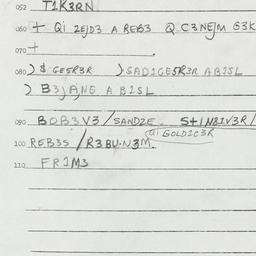 052 T1K3RN
060 + Qi ZEJD3 A REB3 Q C3NEJM G3K
070 +
080 ) $ GE5R3R ) GAD1GE5R3R A B1SL
) B3JANG A B1SL
090 BOB3V3 / SANDZE S+INB1V3R /
Qi GOLD1C3R
100 REB3S / R3BUN3M
110 FR1M3